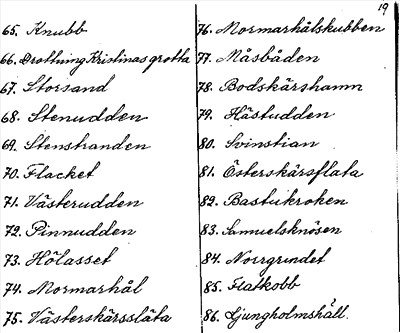 19
65. Knubb
66. Drottning Kristinas grotta
67. Storsand
68. Stenudden
69. Stenstranden
70. Flacket
71. Västerudden
72. Pinnudden
73. Hölasset
74. Mormarhål
75. Västerskärssläta
76. Mormarhålskubben
77. Måsbåden
78. Bodskärshamn
79. Hästudden
80. Svinstian
81. Österskärsflata
82. Bastukroken
83. Samuelsknösen
84. Norrgrundet
85. Flatkobb
86. Ljungholmshäll.